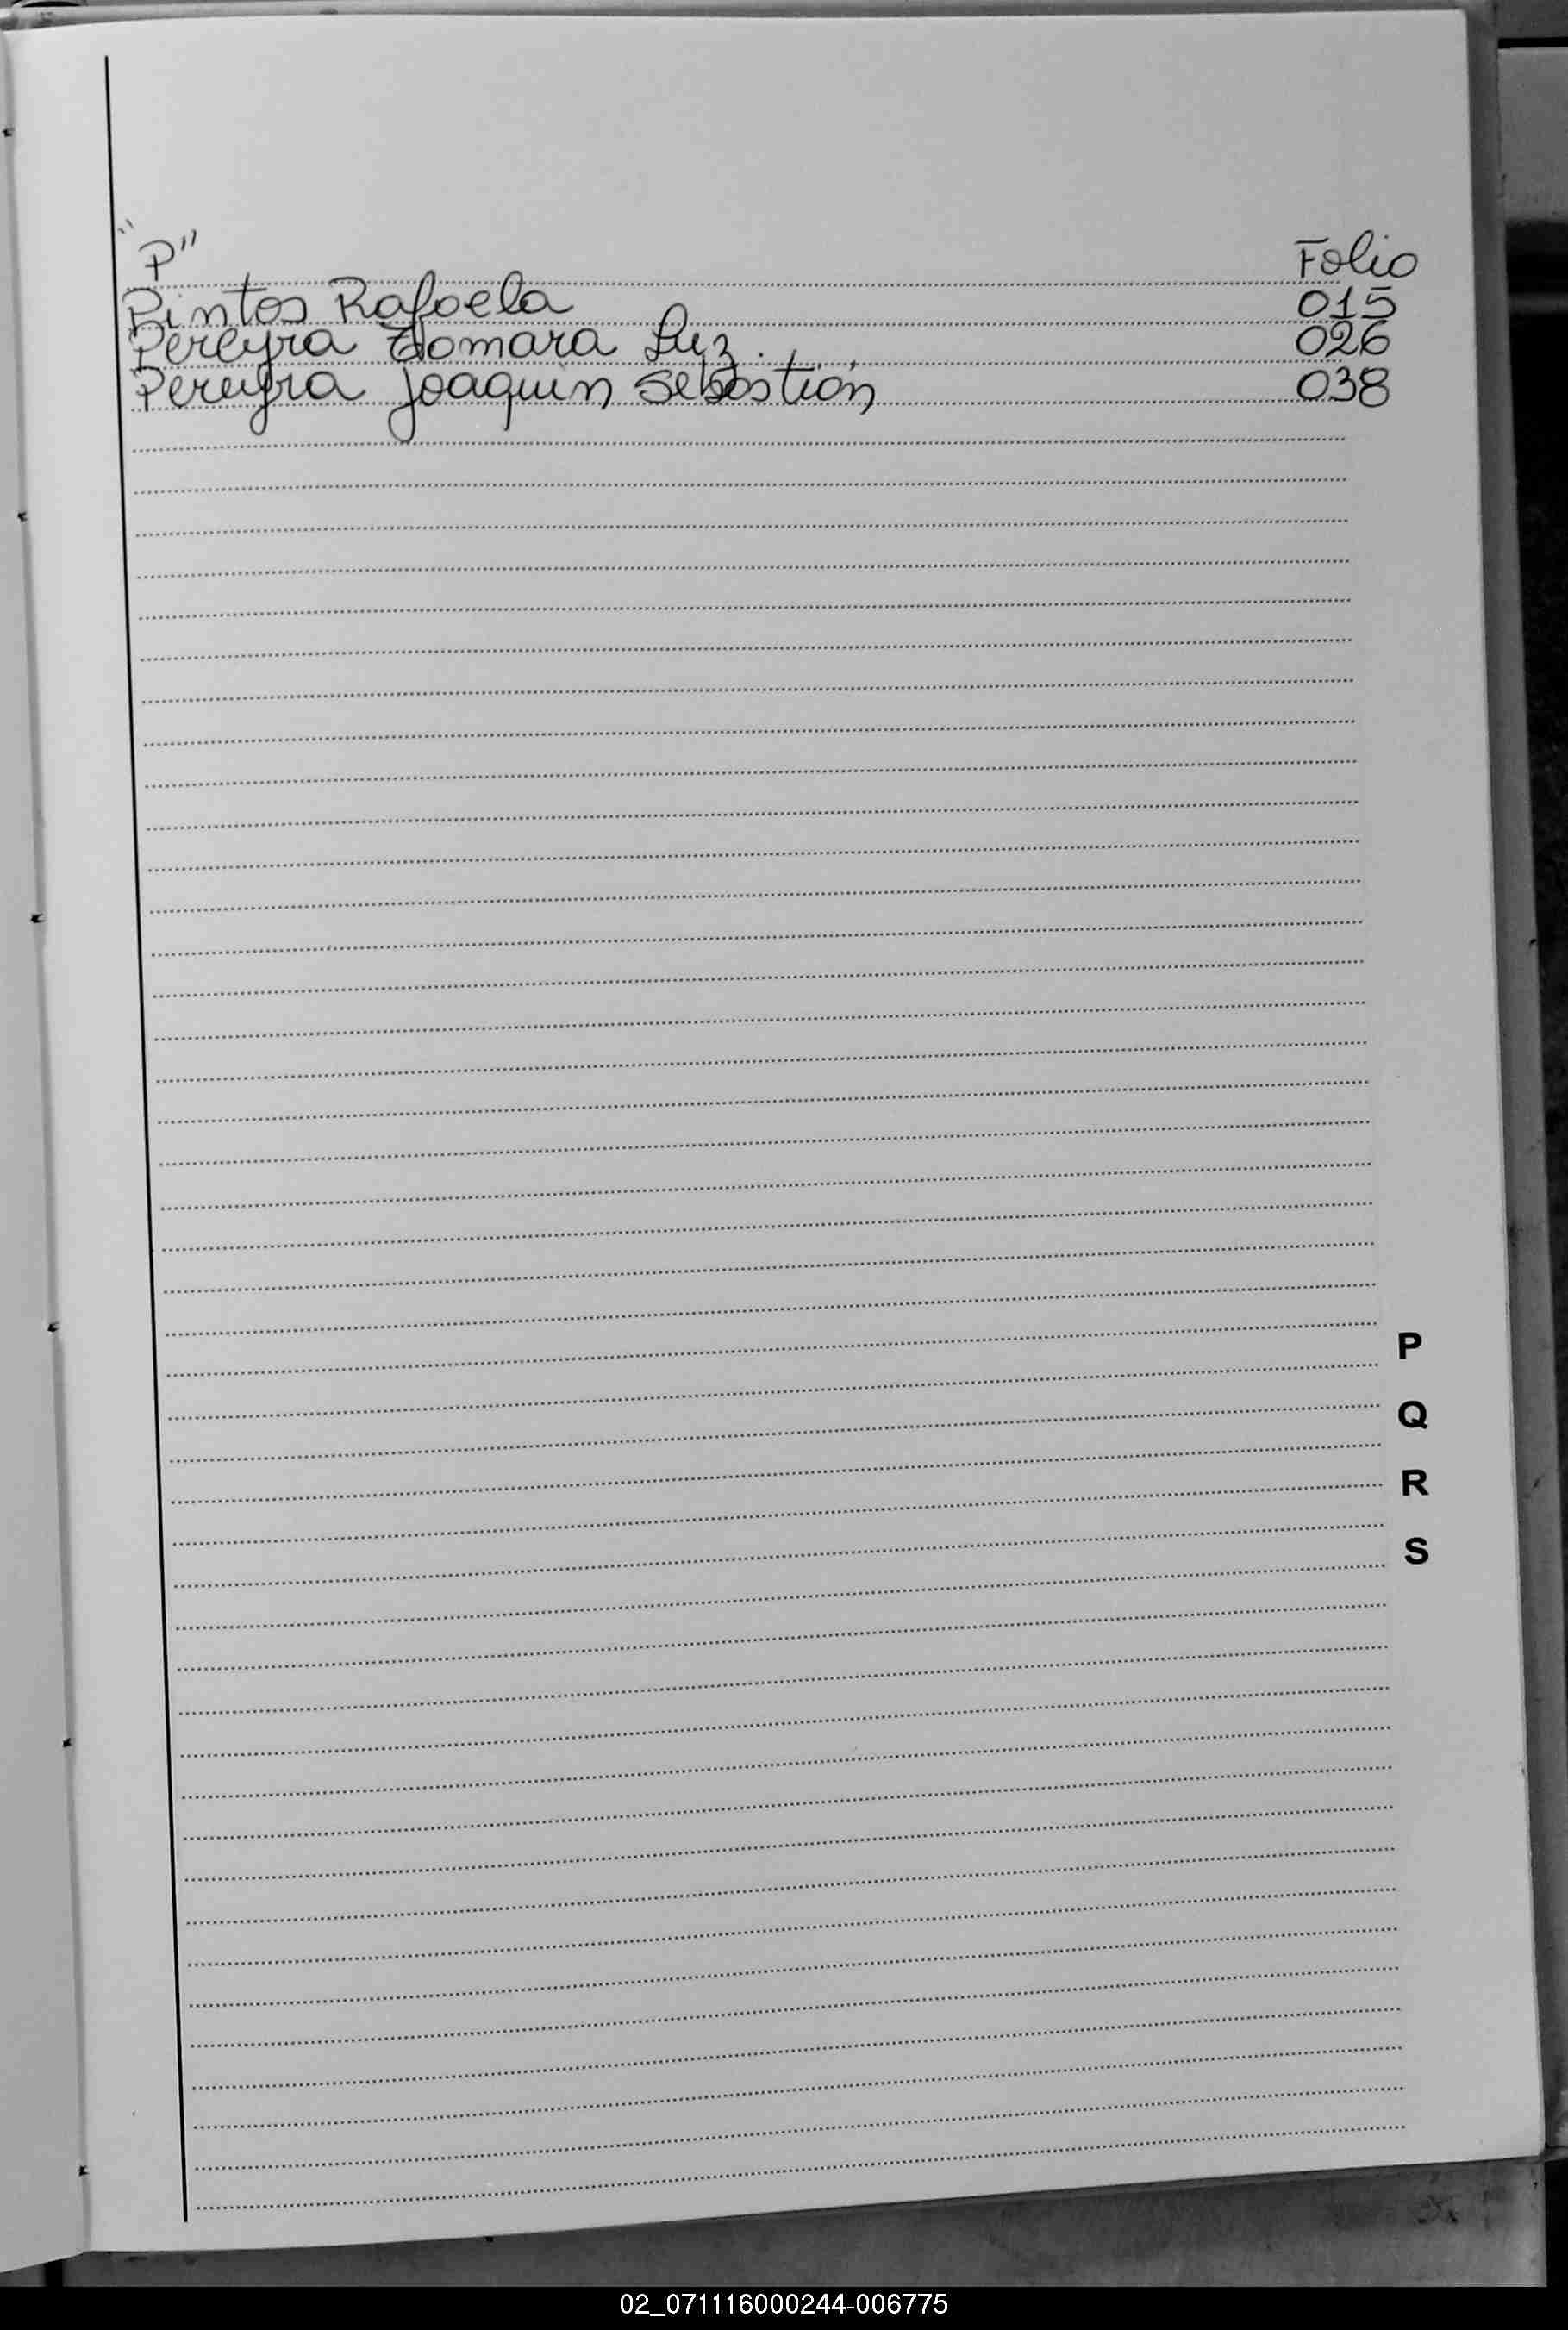 "P" Folio
Pintos Rafaela 015
Pereyra Tamara Luz. 026
Pereyra Joaquín Sebastián 038
P
Q
R
S
02_071116000244-006775